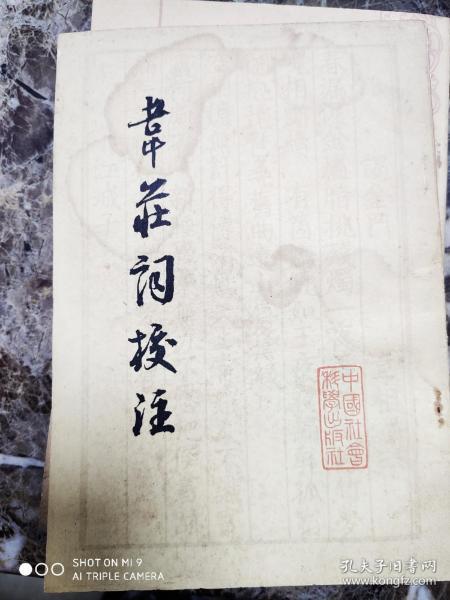 韋莊詞校注
中國社會
科學出版社
SHOT ON MI 9
AI TRIPLE CAMERA
孔夫子旧书网
www.kongfz.com